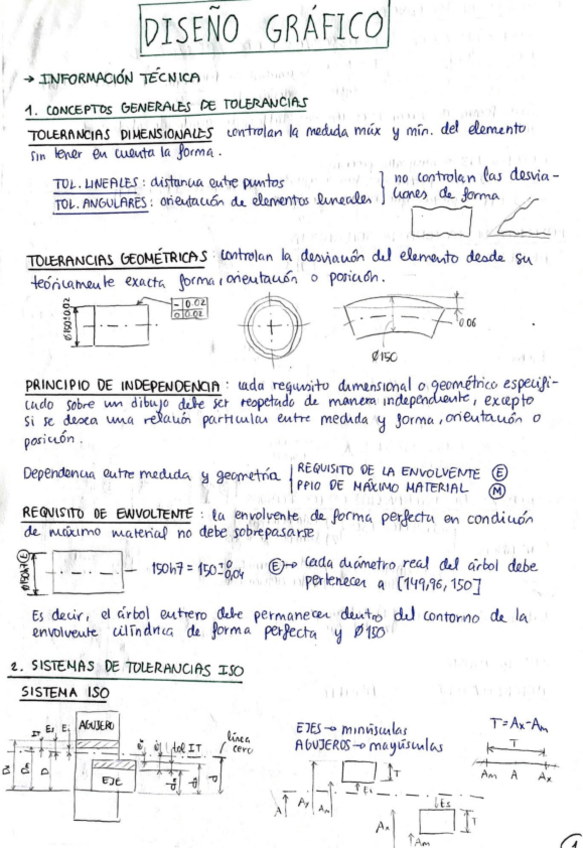 DISEÑO GRÁFICO
→ INFORMACIÓN TÉCNICA
1. CONCEPTOS GENERALES DE TOLERANCIAS
TOLERANCIAS DIMENSIONALES controlan la medida máx y mín. del elemento
sin tener en cuenta la forma.
TOL. LINEALES: distancia entre puntos
TOL. ANGULARES: orientación de elementos lineales
no controlan las desvia-
ciones de forma
TOLERANCIAS GEOMÉTRICAS: controlan la desviación del elemento desde su
teóricamente exacta forma, orientación o posición.
Ø150±0.02
0.02
0.02
0.06
Ø150
PRINCIPIO DE INDEPENDENCIA: cada requisito dimensional o geométrico especifi-
cado sobre un dibujo debe ser respetado de manera independiente, excepto
si se desea una relación particular entre medida y forma, orientación o
posición.
Dependencia entre medida y geometría
REQUISITO DE LA ENVOLVENTE Ⓔ
PPIO DE MÁXIMO MATERIAL Ⓜ
REQUISITO DE ENVOLTENTE: la envolvente de forma perfecta en condición
de máximo material no debe sobrepasarse
Ø150h7 Ⓔ
150h7 = 150 0 -0,04
Ⓔ→ Cada diámetro real del árbol debe
pertenecer a [149,96, 150]
Es decir, el árbol entrero debe permanecer dentro del contorno de la
envolvente cilíndrica de forma perfecta y Ø150
2. SISTEMAS DE TOLERANCIAS ISO
SISTEMA ISO
AGUJERO
EJE
tol IT
línea
cero
EJES → minúsculas
AGUJEROS → mayúsculas
T = Ax - Am
T
Am A Ax
T
A
Am
T
Ax
Am